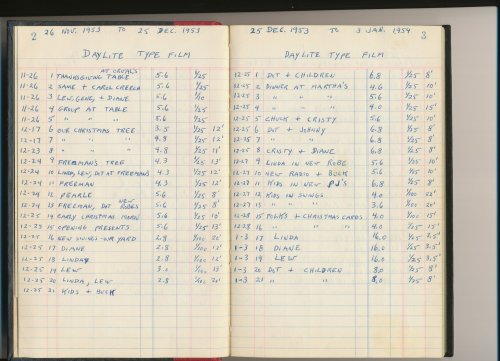 2 26 NOV. 1953 TO 25 DEC. 1953
DAYLITE TYPE FILM
11-26 1 THANKSGIVING TABLE AT ORVAL'S 5.6 1/25
11-26 2 SAME + CAROL CREECH 5.6 1/25
11-26 3 LEW, GENE, + DIANE 5.6 1/10
11-26 4 GROUP AT TABLE 5.6 1/25
11-26 5 " " " 5.6 1/25
12-17 6 OUR CHRISTMAS TREE 3.5 1/25 12'
12-17 7 " " " 4.8 1/25 8'
12-23 8 " " " 4.8 1/25 11'
12-24 9 FREEMAN'S TREE 4.3 1/25 13'
12-24 10 LINDA, LEW, DOT AT FREEMAN'S 4.3 1/25 12'
12-24 11 FREEMAN 4.3 1/25 12'
12-24 12 PEARLE 5.6 1/25 8'
12-24 13 FREEMAN, DOT NEW ROBES 5.6 1/25 8'
12-25 14 EARLY CHRISTMAS MORN 5.6 1/25 10'
12-25 15 OPENING PRESENTS 5.6 1/25 13'
12-25 16 NEW SWINGS-OUR YARD 2.8 1/100 20'
12-25 17 DIANE 2.8 1/100 12'
12-25 18 LINDA 2.8 1/100 12'
12-25 19 LEW 1/100
12-25 20 LINDA, LEW 2.8 1/100 20'
12-25 21 KIDS + BUCK
25 DEC. 1953 TO 3 JAN. 1954 3
DAYLITE TYPE FILM
12-25 1 DOT + CHILDREN 6.8 1/25 8'
12-25 2 DINNER AT MARTHA'S 4.6 1/25 10'
12-25 3 " " " 5.6 1/25 10'
12-25 4 " " " 4.0 1/25 15'
12-25 5 CHUCK + CRISTY 5.6 1/25 10'
12-25 6 DOT + JOHNNY 6.8 1/25 8'
12-25 7 " " " 6.8 1/25 8'
12-25 8 CRISTY + DIANE 6.8 1/25 8'
12-27 9 LINDA IN NEW ROBE 5.6 1/25 10'
12-27 10 NEW RADIO + BUCK 5.6 1/25 10'
12-27 11 KIDS IN NEW PJ'S 6.8 1/25 8'
12-27 12 KIDS IN SWINGS 4.0 1/100 20'
12-27 13 " " " 3.6 1/100 20'
12-28 15 FOLKS + CHRISTMAS CARDS 4.0 1/100 15'
12-28 16 " " " 4.0 1/25 15'
1-3 17 LINDA 16.0 1/25 3.5'
1-3 18 DIANE 16.0 1/25 3.5'
1-3 19 LEW 16.0 1/25 3.5'
1-3 20 DOT + CHILDREN 8.0 1/25 8'
1-3 21 " " 8.0 1/25 8'